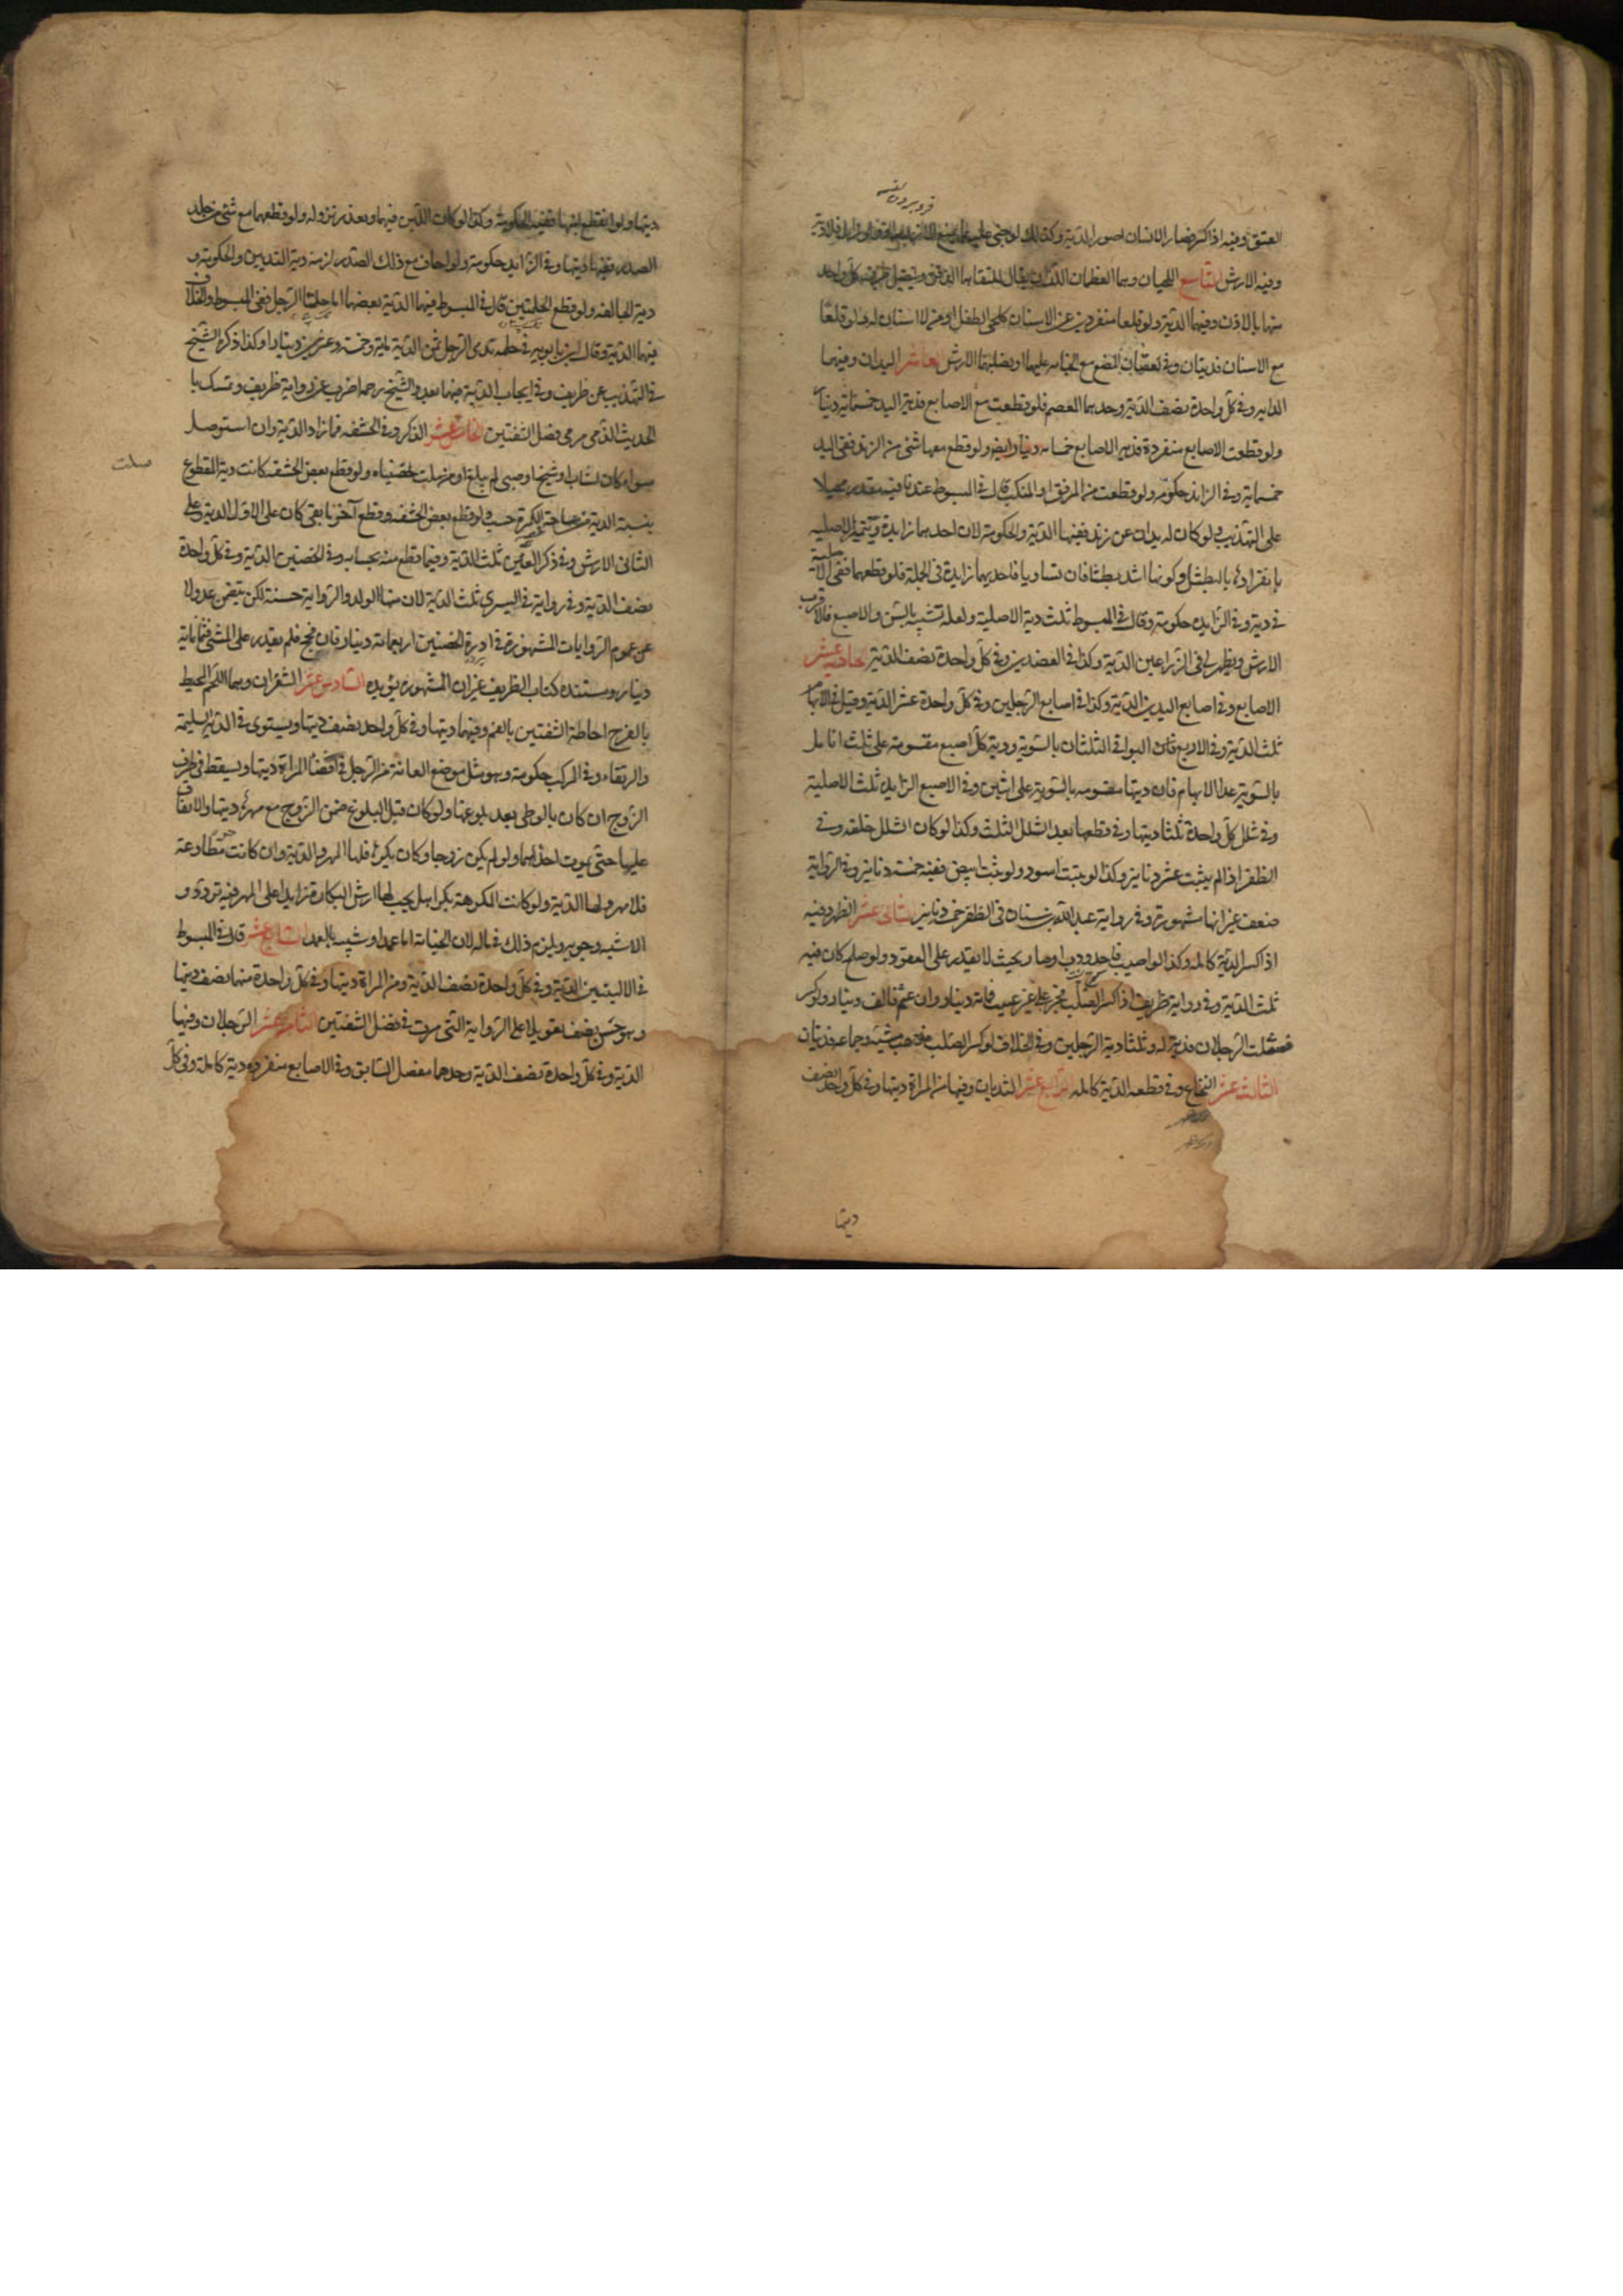 فرو بردن لقمه
العنق وفيه اذا كسر فصار الانسان اصور الدية وكذا لو جنى عليه بما يمنع الازدراد ولو زال فلا دية
وفيه الارش التاسع اللحيان وهما العظمان اللذان يقال لملتقاهما الذقن ويتصل طرف كل واحد
منهما بالاذن وفيهما الدية ولو قلعا منفردين عن الاسنان كلحي الطفل او من لا اسنان له ولو قلعا
مع الاسنان فديتان وفي نقصان المضغ مع الجناية عليهما او تصلبهما الارش العاشر اليدان وفيهما
الدية وفي كل واحدة نصف الدية وحدهما المعصم فلو قطعت مع الاصابع فدية اليد خمسمائة دينار
ولو قطعت الاصابع منفردة فدية الاصابع خمسمائة دينار ولو قطع معها شئ من الزند ففي اليد
خمسمائة وفي الزائد حكومة ولو قطعت من المرفق او المنكب قال في المبسوط عندنا فيه مقدر محيلا
على التهذيب ولو كان له يدان على زند ففيهما الدية والحكومة لان احديهما زايدة وتتميز الاصلية
بانفرادها بالبطش او كونها اشد بطشا فان تساويا فاحديهما زايدة في الجملة فلو قطعهما ففي الاصلية
دية وفي الزايدة حكومة وقال في المبسوط ثلث دية الاصلية ولعله تشبيه بالسن والاصبع فالاقرب
الارش ويظهر لي في الذراعين الدية وكذا في العضدين وفي كل واحدة نصف الدية الحادي عشر
الاصابع وفي اصابع اليدين الدية وكذا في اصابع الرجلين وفي كل واحدة عشر الدية وقيل في الابهام
ثلث الدية وفي الاربع البواقي الثلثان بالسوية ودية كل اصبع مقسومة على ثلث انامل
بالسوية عدا الابهام فان ديتها مقسومة بالسوية على اثنين وفي الاصبع الزايدة ثلث الاصلية
وفي شلل كل واحدة ثلثا ديتها وفي قطعها بعد الشلل الثلث وكذا لو كان الشلل خلقة وفي
الظفر اذا لم ينبت عشر دنانير وكذا لو ينبت اسود ولو نبت ابيض ففيه خمسة دنانير وفي الرواية
ضعف غير انها مشهورة وفي رواية عبد الله بن سنان في الظفر خمسة دنانير الثاني عشر الظهر وفيه
اذا كسر الدية كاملة وكذا لو اصيب فاحدودب او صار بحيث لا يقدر على القعود ولو صلح كان فيه
ثلث الدية وفي رواية ظريف اذا كسر الصلب فجبر على غير عيب فمائة دينار وان عثم فالف دينار ولو كسر
فشلت الرجلان فدية له وثلثا دية الرجلين وفي الخلاف لو كسر الصلب فذهب مشيه وجماعه فديتان
الثالث عشر النخاع وفي قطعه الدية كاملة الرابع عشر الثديان وفيهما من المراة ديتها وفي كل واحد نصف
ديتها
ديتها ولو انقطع لبنهما ففيه الحكومة وكذا لو كان اللبن فيهما وتعذر نزوله ولو قطعهما مع شئ من جلد
الصدر ففيهما ديتها وفي الزائد حكومة ولو اجاف مع ذلك الصدر لزمه دية الثديين والحكومة و
دية الجائفة ولو قطع الحلمتين قال في المبسوط فيهما الدية اما حلمتا الرجل ففي المبسوط والخلاف
فيهما الدية وقال ابن بابويه في حلمة ثدي الرجل ثمن الدية مائة وخمسة وعشرين دينارا وكذا ذكره الشيخ
في التهذيب عن ظريف وفي ايجاب الدية فيهما بعد والشيخ رحمه اضرب عن رواية ظريف وتمسك با
لحديث الذي مر في فصل الشفتين الخامس عشر الذكر وفي الحشفة فما زاد الدية وان استوصل
سواء كان لشاب او شيخ او صبي لم يبلغ او من سلت خصيتاه ولو قطع بعض الحشفة كانت دية المقطوع
سلت
بنسبة الدية من مساحة الكمرة حسب ولو قطع بعض الحشفة وقطع آخر ما بقي كان على الاول الدية وعلى
الثاني الارش وفي ذكر العنين ثلث الدية وفيما قطع منه بحسابه وفي الخصيتين الدية وفي كل واحدة
نصف الدية وفي رواية في اليسرى ثلثا الدية لان منها الولد والرواية حسنة لكن يتضمن عدولا
عن عموم الروايات المشهورة وفي ادرة الخصيتين اربعمائة دينار فان فحج فلم يقدر على المشي فثمانمائة
دينار ومستنده كتاب الظريف غير ان الشهرة يؤيده السادس عشر الشفران وهما اللحم المحيط
بالفرج احاطة الشفتين بالفم وفيهما ديتها وفي كل واحد نصف ديتها ويستوى في الدية السليمة
والرتقاء وفي الركب حكومة وهو مثل موضع العانة من الرجل في افضاء المراة ديتها ويسقط في طرف
الزوج ان كان بالوطي بعد بلوغها ولو كان قبل البلوغ ضمن الزوج مع مهرها ديتها والانفاق
عليها حتى يموت احدهما ولو لم يكن زوجا وكان مكرها فلها المهر والدية وان كانت مطاوعة
فلا مهر ولها الدية ولو كانت المكرهة بكرا هل يجب لها ارش البكارة زايدا على المهر فيه تردد و
الاشبه وجوبه ويلزم ذلك في ماله لان الجناية اما عمدا وشبيه بالعمد السابع عشر قال في المبسوط
في الاليتين الدية وفي كل واحدة نصف الدية ومن المراة ديتها وفي كل واحدة منهما نصف ديتها
وهو حسن تعويلا على الرواية التي مرت في فصل الشفتين الثامن عشر الرجلان وفيهما
الدية وفي كل واحدة نصف الدية وحدهما مفصل الساق وفي الاصابع منفردة دية كاملة وفي كل